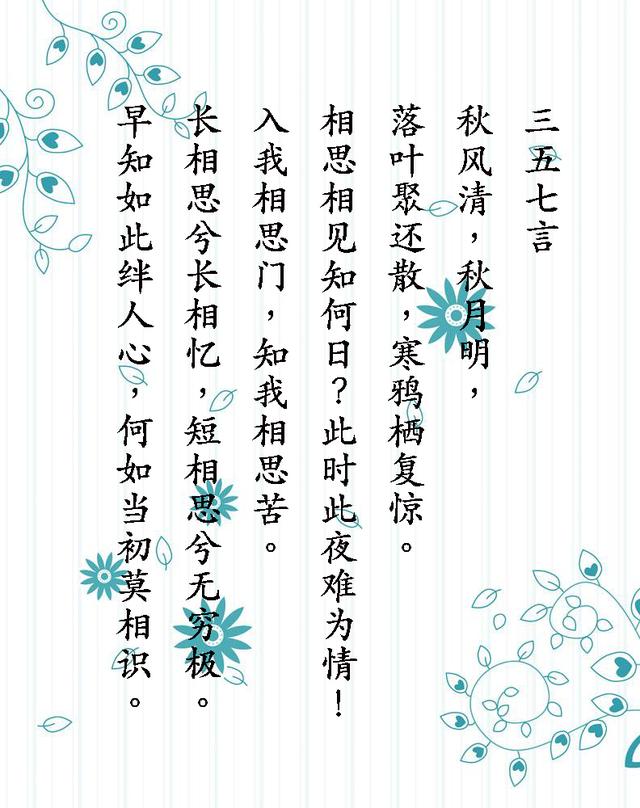 三五七言
秋风清，秋月明，
落叶聚还散，寒鸦栖复惊。
相思相见知何日？此时此夜难为情！
入我相思门，知我相思苦。
长相思兮长相忆，短相思兮无穷极。
早知如此绊人心，何如当初莫相识。